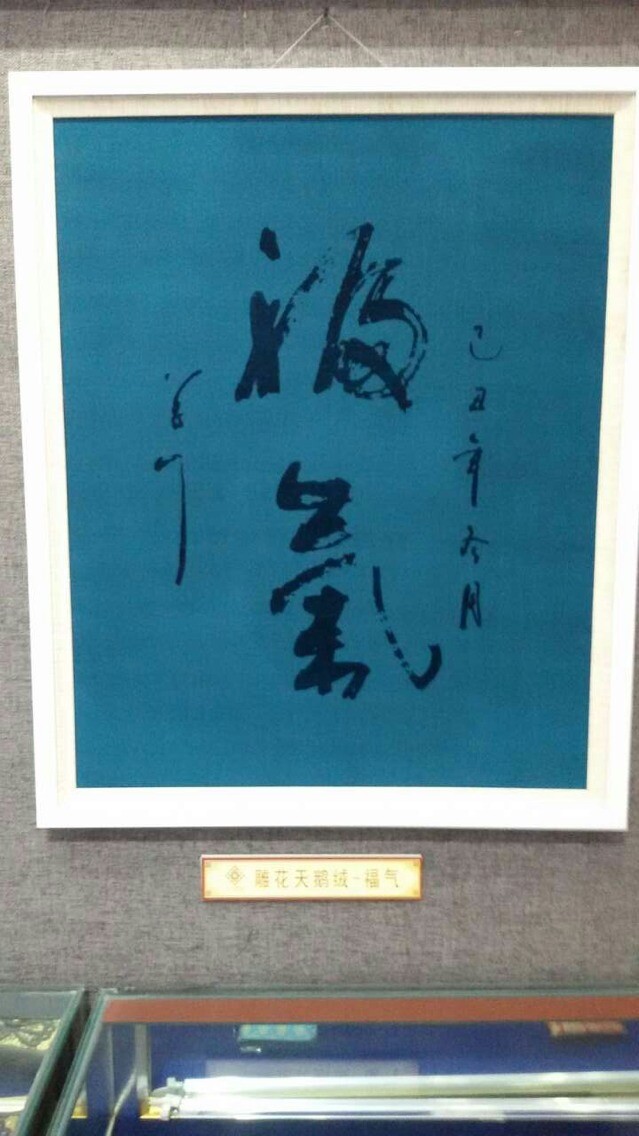 己丑年冬月
福氣
雕花天鹅绒-福气